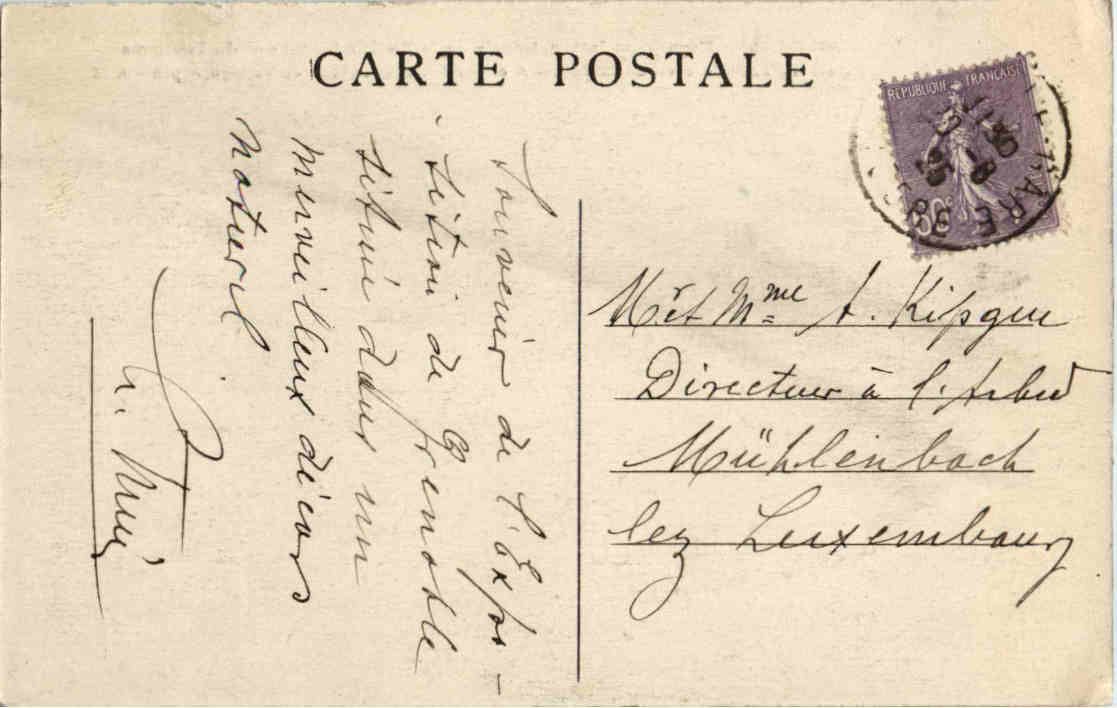 CARTE POSTALE
RÉPUBLIQUE FRANÇAISE
Souvenir de l'Expo-
sition de Grenoble
situé dans un
merveilleux décors
naturel
Mr et Mme A. Kipgen
Directeur à l'Arbed
Mühlenbach
lez Luxembourg